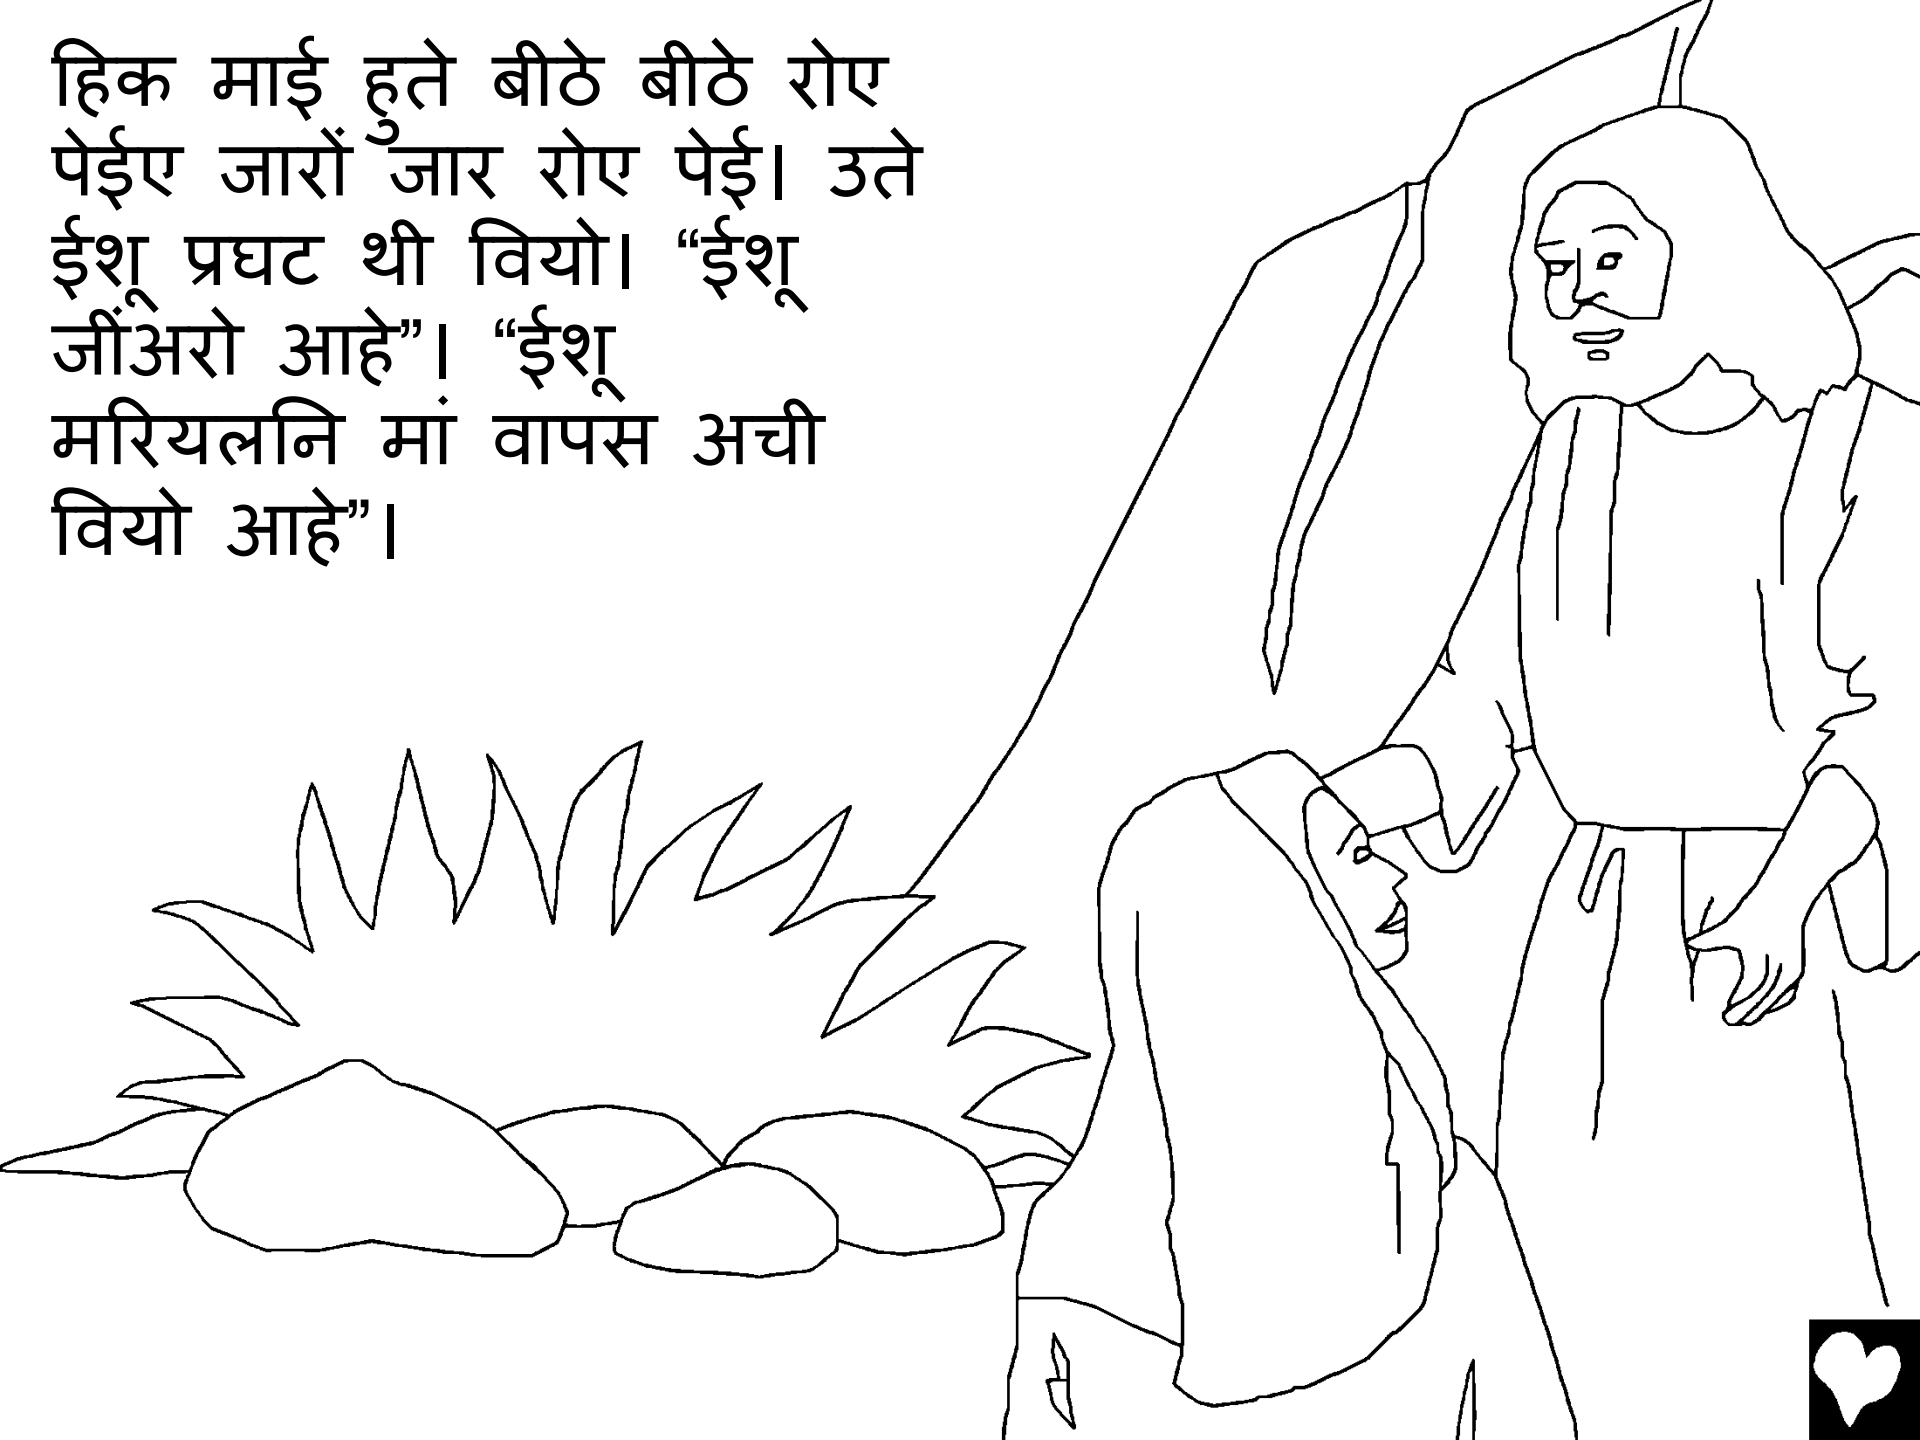 हिक माई हुते बीठे बीठे रोए
पेईए जारों जार रोए पेई। उते
ईशू प्रघट थी वियो। “ईशू
जींअरो आहे”। “ईशू
मरियलनि मां वापस अची
वियो आहे”।